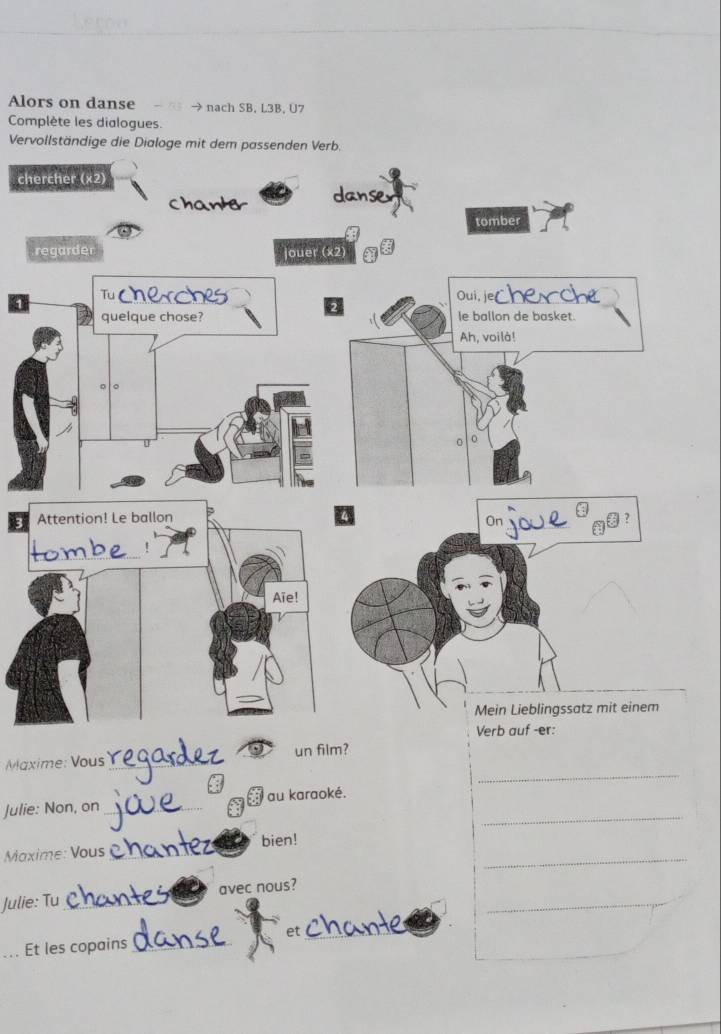 Leçon
Alors on danse → nach SB, L3B, Ü7
Complète les dialogues.
Vervollständige die Dialoge mit dem passenden Verb.
chercher (x2)
chanter
danser
tomber
regarder
jouer (x2)
1
Tu cherches
quelque chose?
2
Oui, je cherche
le ballon de basket.
Ah, voilà!
3
Attention! Le ballon
tombe !
Aïe!
4
On joue ?
Maxime: Vous regardez un film?
Julie: Non, on joue au karaoké.
Maxime: Vous chantez bien!
Julie: Tu chantes avec nous?
... Et les copains danse et chante .
Mein Lieblingssatz mit einem
Verb auf -er: